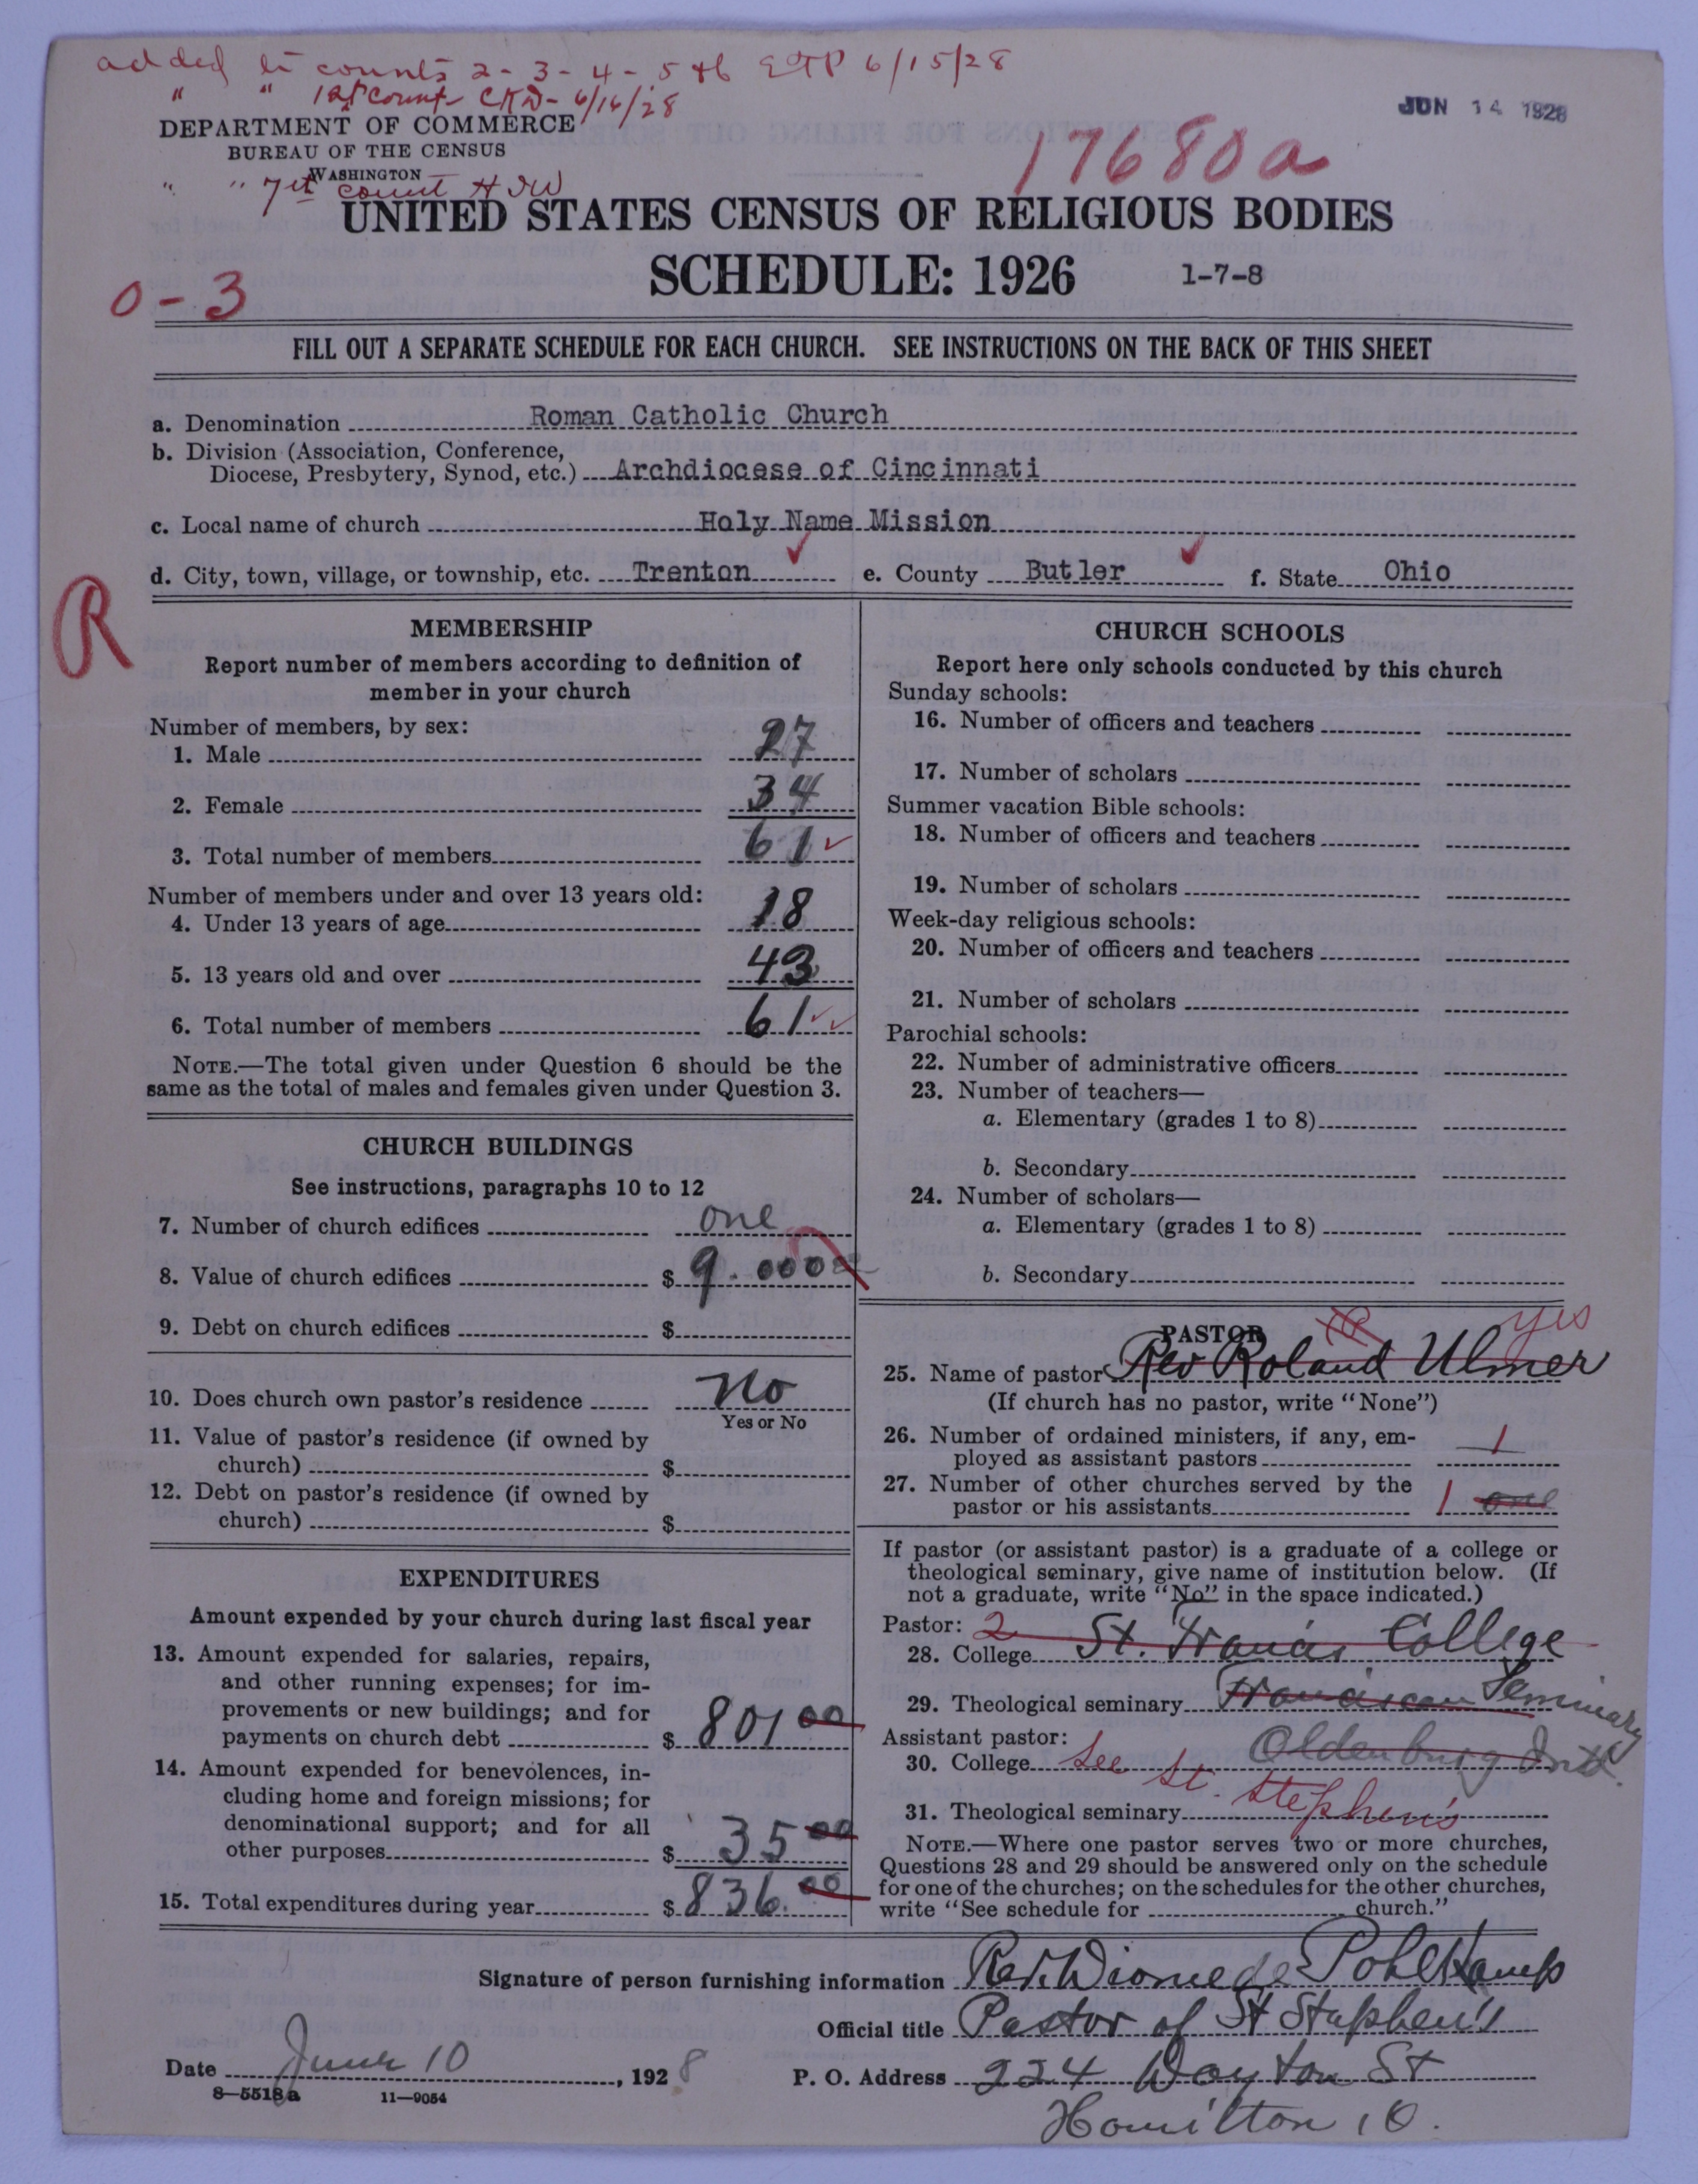 added to counts 2-3-4-5+6 ETP 6/15/28
" " 1st count CKD- 6/16/28
JUN 14 1928
DEPARTMENT OF COMMERCE
BUREAU OF THE CENSUS
WASHINGTON
" " 7th count HJW
17680a
UNITED STATES CENSUS OF RELIGIOUS BODIES
SCHEDULE: 1926 1-7-8
0-3
FILL OUT A SEPARATE SCHEDULE FOR EACH CHURCH. SEE INSTRUCTIONS ON THE BACK OF THIS SHEET
a. Denomination Roman Catholic Church
b. Division (Association, Conference,
Diocese, Presbytery, Synod, etc.) Archdiocese of Cincinnati
c. Local name of church Holy Name Mission
d. City, town, village, or township, etc. Trenton e. County Butler f. State Ohio
R
MEMBERSHIP
Report number of members according to definition of
member in your church
Number of members, by sex:
1. Male 27
2. Female 34
3. Total number of members 61
Number of members under and over 13 years old:
4. Under 13 years of age 18
5. 13 years old and over 43
6. Total number of members 61
NOTE.—The total given under Question 6 should be the
same as the total of males and females given under Question 3.
CHURCH BUILDINGS
See instructions, paragraphs 10 to 12
7. Number of church edifices one
8. Value of church edifices $ 9.000 00
9. Debt on church edifices $
10. Does church own pastor's residence No
Yes or No
11. Value of pastor's residence (if owned by
church) $
12. Debt on pastor's residence (if owned by
church) $
EXPENDITURES
Amount expended by your church during last fiscal year
13. Amount expended for salaries, repairs,
and other running expenses; for im-
provements or new buildings; and for
payments on church debt $ 801 00
14. Amount expended for benevolences, in-
cluding home and foreign missions; for
denominational support; and for all
other purposes $ 35 00
15. Total expenditures during year $ 836. 00
CHURCH SCHOOLS
Report here only schools conducted by this church
Sunday schools:
16. Number of officers and teachers
17. Number of scholars
Summer vacation Bible schools:
18. Number of officers and teachers
19. Number of scholars
Week-day religious schools:
20. Number of officers and teachers
21. Number of scholars
Parochial schools:
22. Number of administrative officers
23. Number of teachers—
a. Elementary (grades 1 to 8)
b. Secondary
24. Number of scholars—
a. Elementary (grades 1 to 8)
b. Secondary
PASTOR yes
25. Name of pastor Rev Roland Ulmer
(If church has no pastor, write "None")
26. Number of ordained ministers, if any, em-
ployed as assistant pastors 1
27. Number of other churches served by the
pastor or his assistants 1 one
If pastor (or assistant pastor) is a graduate of a college or
theological seminary, give name of institution below. (If
not a graduate, write "No" in the space indicated.)
Pastor: 2
28. College St. Francis College
29. Theological seminary Franciscan Seminary
Assistant pastor: Oldenburg Ind.
30. College See St. Stephen's
31. Theological seminary
NOTE.—Where one pastor serves two or more churches,
Questions 28 and 29 should be answered only on the schedule
for one of the churches; on the schedules for the other churches,
write "See schedule for church."
Signature of person furnishing information Rev. Diomede Pohlkamp
Official title Pastor of St Stephen's
Date June 10, 1928 P. O. Address 224 Dayton St
8—5518a 11—9054
Hamilton, O.